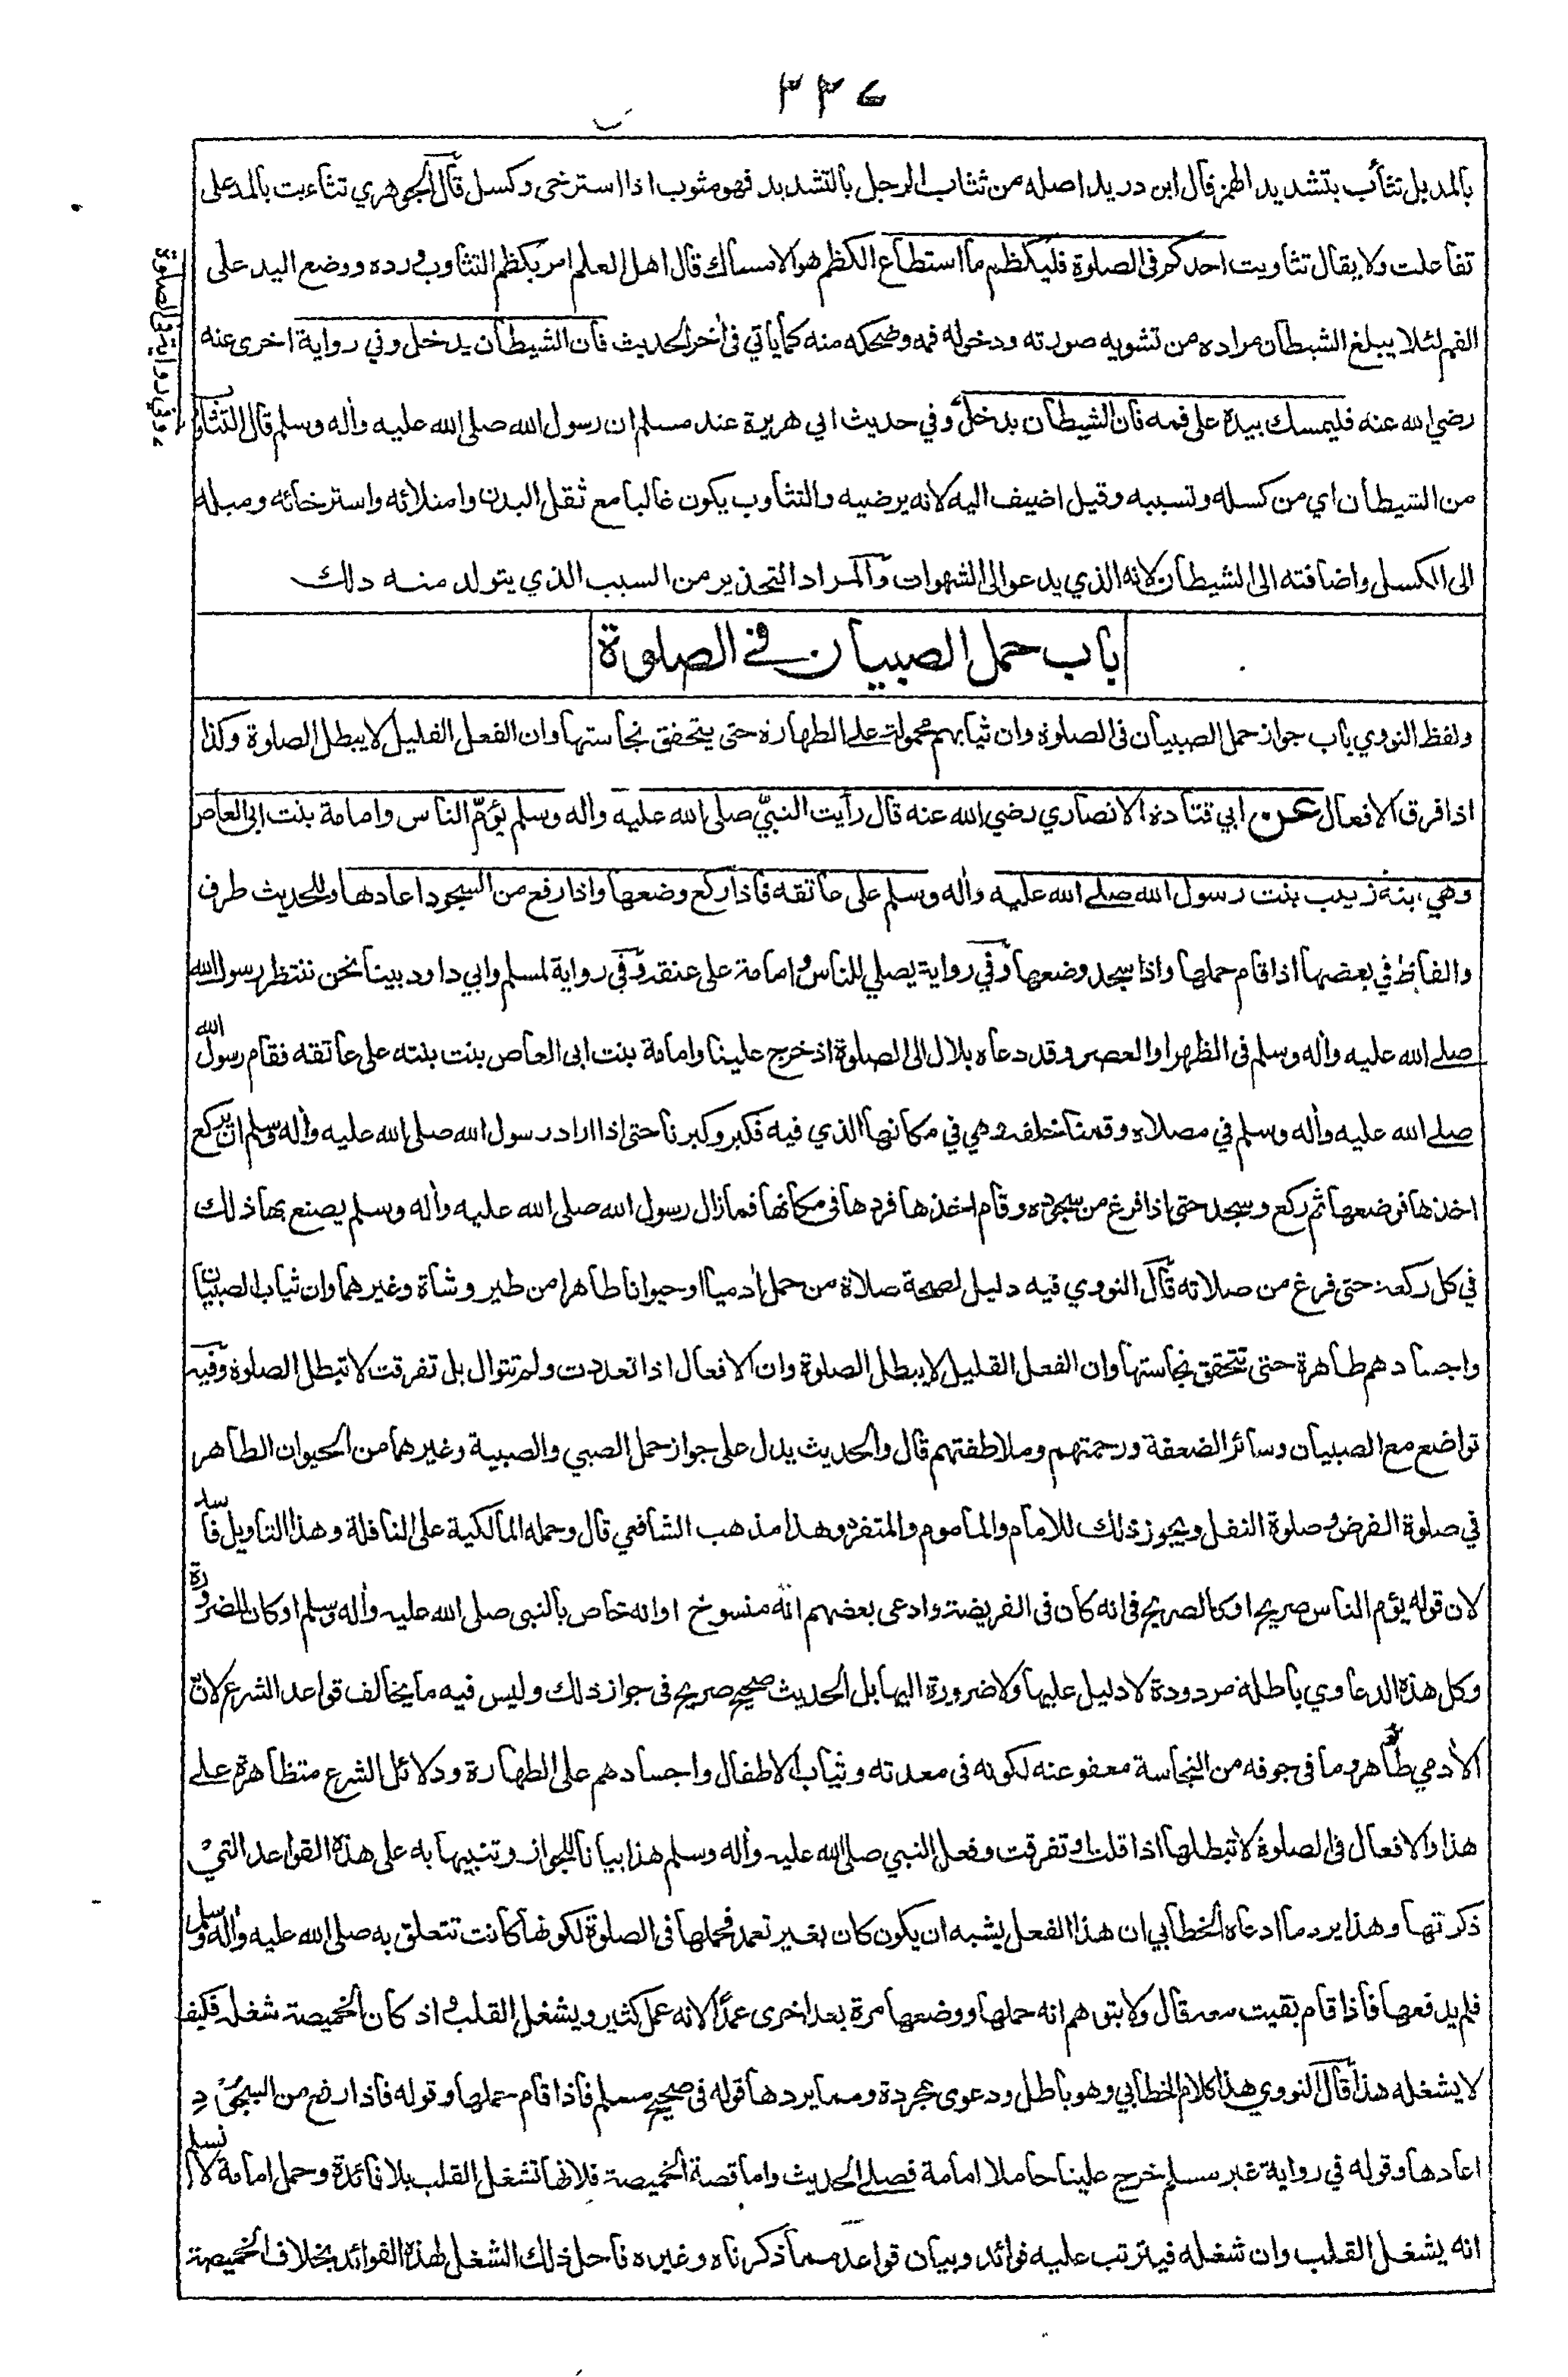 ٢٣٤
بالمد بل تثأب بتشديد الهمز قال ابن دريد اصله من تثأب الرجل بالتشديد فهو مثوب اذا استرخى وكسل قال الجوهري تثاءبت بالمد على
تفاعلت ولا يقال تثاوبت احدكم فى الصلوة فليكظم ما استطاع الكظم هو الامساك قال اهل العلم امر بكظم التثاوب ورده ووضع اليد على
الفم لئلا يبلغ الشيطان مراده من تشويه صورته ودخوله فمه وضحكه منه كما ياتي فى اخر الحديث فان الشيطان يدخل وفي رواية اخرى عنه
رضي الله عنه فليمسك بيده على فمه فان الشيطان يدخل وفي حديث ابي هريرة عند مسلم ان رسول الله صلى الله عليه واله وسلم قال التثاوب
من الشيطان اي من كسله وتسببه وقيل اضيف اليه لانه يرضيه والتثاوب يكون غالبا مع ثقل البدن وامتلائه واسترخائه وميله
الى الكسل واضافته الى الشيطان لانه الذي يدعو الى الشهوات والمراد التحذير من السبب الذي يتولد منه ذلك
باب حمل الصبيان في الصلوة
ولفظ النووي باب جواز حمل الصبيان فى الصلوة وان ثيابهم محمولة على الطهارة حتى يتحقق نجاستها وان الفعل القليل لا يبطل الصلوة وكذا
اذا فرق الافعال عن ابي قتادة الانصاري رضي الله عنه قال رأيت النبيّ صلى الله عليه واله وسلم يؤمّ الناس وامامة بنت ابى العاص
وهي ابنة زينب بنت رسول الله صلى الله عليه واله وسلم على عاتقه فاذا ركع وضعها واذا رفع من السجود اعادها وللحديث طرف
والفاظ في بعضها اذا قام حملها واذا سجد وضعها وفي رواية يصلي للناس وامامة على عنقه وفى رواية لمسلم وابي داود بينا نحن ننتظر رسول الله
صلى الله عليه واله وسلم فى الظهر او العصر وقد دعاه بلال الى الصلوة اذ خرج علينا وامامة بنت ابى العاص بنت بنته على عاتقه فقام رسول الله
صلى الله عليه واله وسلم في مصلاه وقمنا خلفه وهي في مكانها الذي فيه فكبر وكبرنا حتى اذا اراد رسول الله صلى الله عليه واله وسلم ان يركع
اخذها فوضعها ثم ركع وسجد حتى اذا فرغ من سجوده وقام اخذها فردها فى مكانها فمازال رسول الله صلى الله عليه واله وسلم يصنع بها ذلك
في كل ركعة حتى فرغ من صلاته قال النووي فيه دليل لصحة صلاة من حمل ادميا او حيوانا طاهرا من طير وشاة وغيرهما وان ثياب الصبيان
واجسادهم طاهرة حتى تتحقق نجاستها وان الفعل القليل لا يبطل الصلوة وان الافعال اذا تعددت ولم تتوال بل تفرقت لا تبطل الصلوة وفيه
تواضع مع الصبيان وسائر الضعفة ورحمتهم وملاطفتهم قال والحديث يدل على جواز حمل الصبي والصبية وغيرهما من الحيوان الطاهر
في صلوة الفرض وصلوة النفل ويجوز ذلك للامام والماموم والمنفرد وهذا مذهب الشافعي قال وحمله المالكية على النافلة وهذا التاويل فاسد
لان قوله يؤم الناس صريح او كالصريح فى انه كان فى الفريضة وادعى بعضهم انه منسوخ او انه خاص بالنبى صلى الله عليه واله وسلم او كان لضرورة
وكل هذه الدعاوي باطلة مردودة لا دليل عليها ولا ضرورة اليها بل الحديث صحيح صريح فى جواز ذلك وليس فيه ما يخالف قواعد الشرع لان
الأدمي طاهر وما فى جوفه من النجاسة معفو عنه لكونه فى معدته وثياب الاطفال واجسادهم على الطهارة ودلائل الشرع متظاهرة على
هذا والافعال فى الصلوة لا تبطلها اذا قلت او تفرقت وفعل النبي صلى الله عليه واله وسلم هذا بيانا للجواز وتنبيها به على هذه القواعد التي
ذكرتها وهذا يرد ما ادعاه الخطابي ان هذا الفعل يشبه ان يكون كان بغير تعمد فحملها فى الصلوة لكونها كانت تتعلق به صلى الله عليه واله وسلم
فلم يدفعها فاذا قام بقيت معه قال ولا يتوهم انه حملها ووضعها مرة بعد اخرى عمدًا لانه عمل كثير ويشغل القلب واذ كان الخميصة شغله فكيف
لا يشغله هذا قال النووي هذا كلام الخطابي وهو باطل ودعوى مجردة ومما يردها قوله فى صحيح مسلم فاذا قام حملها وقوله فاذا رفع من السجود
اعادها وقوله في رواية غير مسلم خرج علينا حاملا امامة فصلى الحديث واما قصة الخميصة فلانها تشغل القلب بلا فائدة وحمل امامة لا نسلم
انه يشغل القلب وان شغله فيترتب عليه فوائد وبيان قواعد مما ذكرناه وغيره فاحل ذلك الشغل لهذه الفوائد بخلاف الخميصة